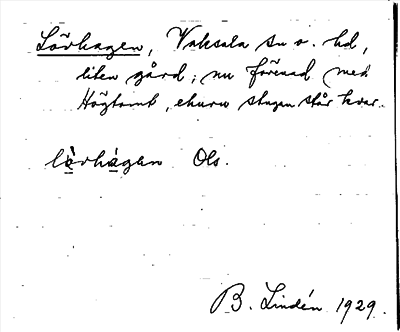 Lövhagen, Vaksala sn o. hd,
liten gård; nu förenad med
Högtomt, ehuru stugan står kvar.
lö̀vhágen Ols.
B. Lindén 1929.